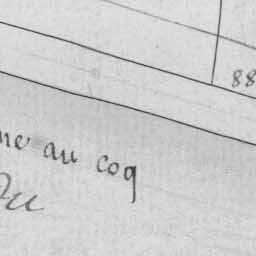 88
ne au coq